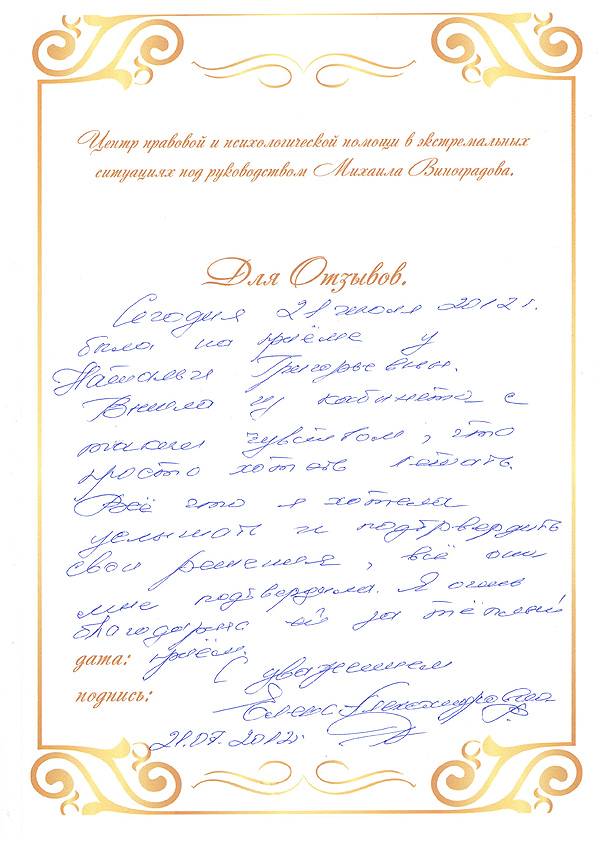 Центр правовой и психологической помощи в экстремальных
ситуациях под руководством Михаила Виноградова.
Для Отзывов.
Сегодня 21 июля 2012 г.
была на приёме у
Натальи Григорьевны.
Вышла из кабинета с
таким чувством, что
просто хотеть летать.
Всё что я хотела
услышать и подтвердить
свои решения, всё она
мне подтвердила. Я очень
благодарна ей за тёплый
дата: приём.
С уважением
подпись:
Елена Александровна
21.07.2012г.